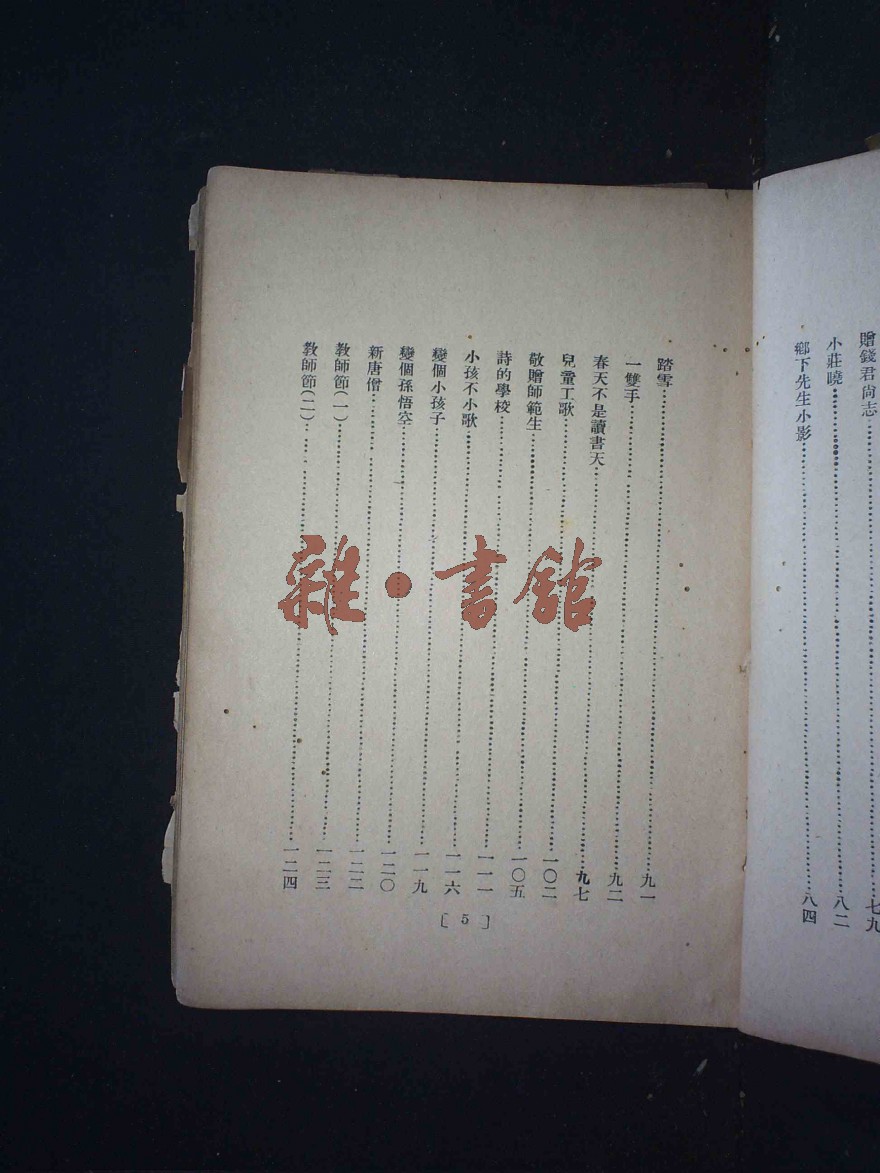 贈錢君尙志……七九
小莊曉……八二
鄉下先生小影……八四
踏雪……九一
一雙手……九二
春天不是讀書天……九七
兒童工歌……一〇二
敬贈師範生……一〇五
詩的學校……一一一
小孩不小歌……一一六
變個小孩子……一一九
變個孫悟空……一二〇
新唐僧……一二二
教師節(一)……一二三
教師節(二)……一二四
〔5〕
雜·書館